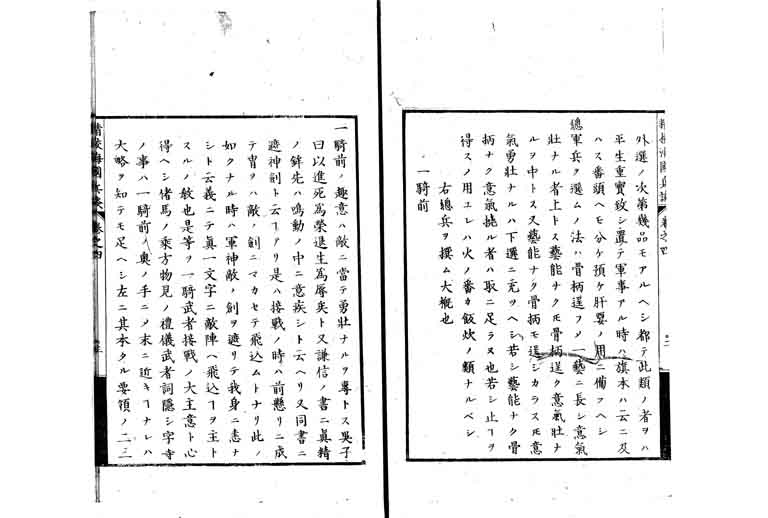 外選ノ次第幾品モアルヘシ都テ此類ノ者ヲハ
平生重寶致シ置テ軍事アル時ハ旗本ハ云ニ及
ハス番頭ヘモ分ケ預ケ肝要ノ用ニ備フヘシ
總軍兵ヲ選ムノ法ハ骨柄逞フメ一藝ニ長シ意氣
壯ナル者上トス藝能ナク𪜈骨柄逞ク意氣壯ナ
ルヲ中トス又藝能ナク骨柄モ逞シカラス𪜈意
氣勇壯ナルハ下選ニ充ヘシ若シ藝能ナク骨
柄ナク意氣撓ル者ハ取ニ足ラス也若シ止ヿヲ
得スメ用ユレハ火ノ番カ飯炊ノ類ナルベシ
右總兵ヲ撰ム大槪也
一騎前
精校海國兵談 卷之四
一騎前ノ趣意ハ敵ニ當テ勇壯ナルヲ專トス吳子
曰以進死為榮退生為辱矣ト又謙信ノ書ニ眞精
ノ鉾先ハ鳴動ノ中ニ意疾シト云ヘリ又同書ニ
遮神劍ト云ヿアリ是ハ接戰ノ時ハ前懸リニ成
テ胄ヲハ敵ノ劍ニマカセテ飛込ムトナリ此ノ
如クナル時ハ軍神敵ノ劍ヲ遮リテ我身ニ恙ナ
シト云義ニテ眞一文字ニ敵陣ヘ飛込ヿヲ主ト
スルノ敎也是等ヲ一騎武者接戰ノ大主意ト心
得ヘシ偖馬ノ乘方物見ノ禮儀武者詞隱シ字寺
ノ事ハ一騎前ノ奥ノ手ニメ末ニ近キヿナレハ
大略ヲ知テモ足ヘシ左ニ其本タル要領ノ二三
精校海國兵談 卷之四